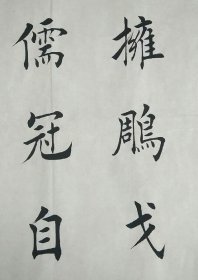 擁鵰戈
儒冠自